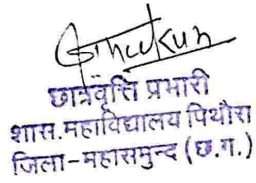 छात्रवृत्ति प्रभारी
शास.महाविद्यालय पिथौरा
जिला-महासमुन्द (छ.ग.)